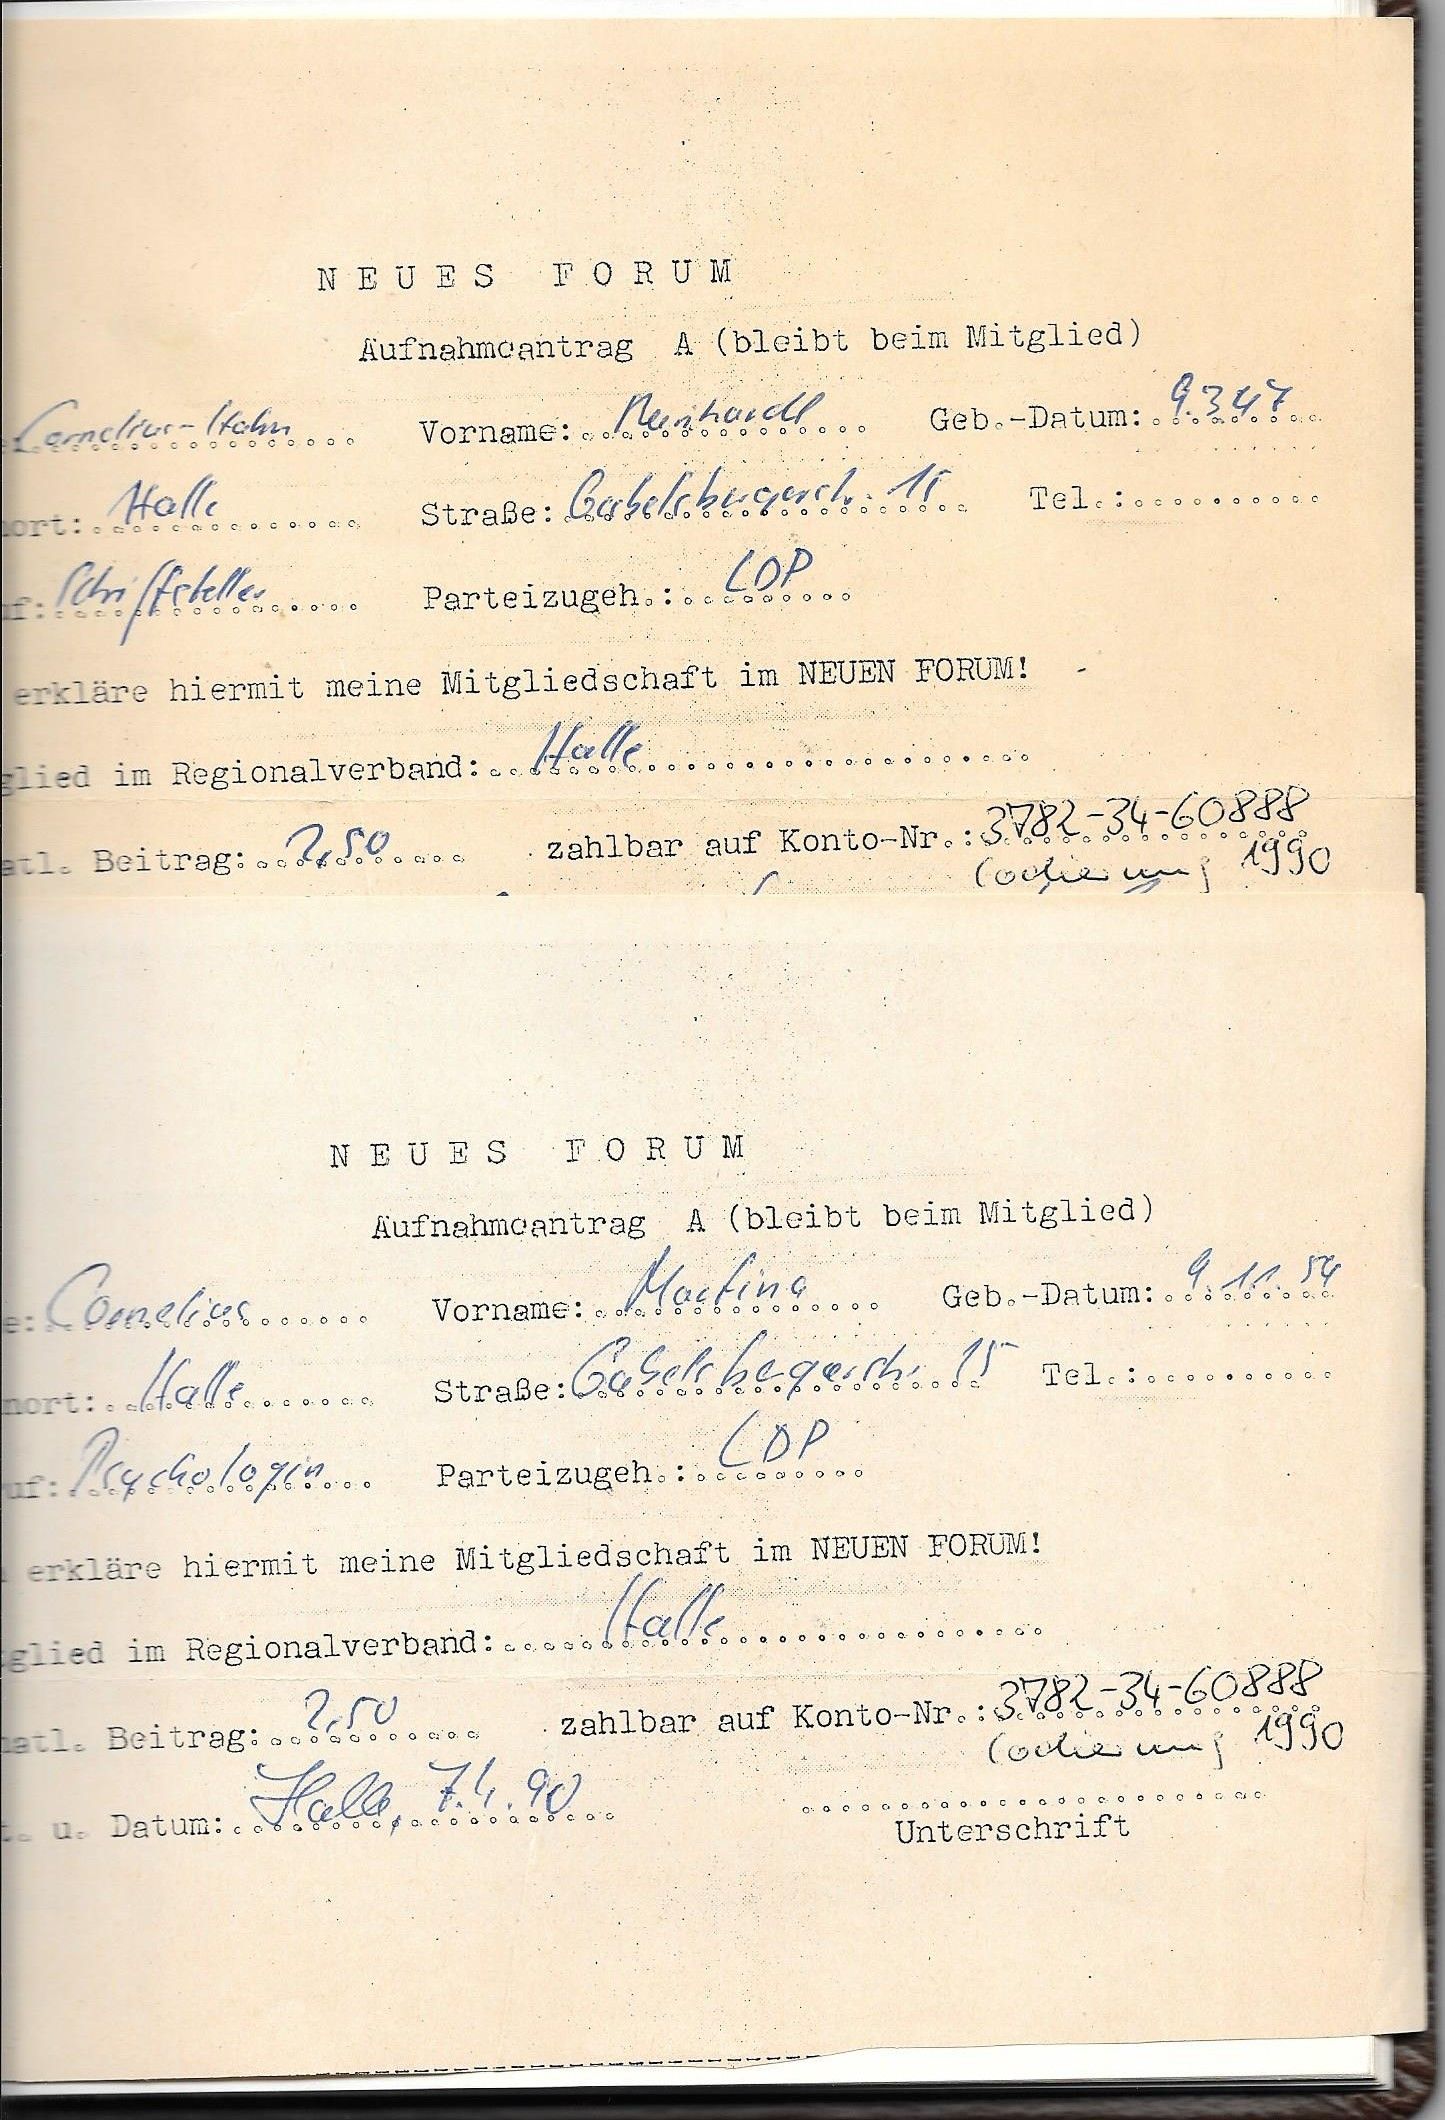 NEUES FORUM
Aufnahmeantrag A (bleibt beim Mitglied)
Cornelius-Hahn Vorname: Reinhardt Geb.-Datum: 9.3.47
ort: Halle Straße: Gabelsbergerstr. 15 Tel.:
uf: Schriftsteller Parteizugeh.: LDP
erkläre hiermit meine Mitgliedschaft im NEUEN FORUM!
glied im Regionalverband: Halle
atl. Beitrag: 2,50 zahlbar auf Konto-Nr.: 3782-34-60888
Codierung 1990
NEUES FORUM
Aufnahmeantrag A (bleibt beim Mitglied)
e: Cornelius Vorname: Martina Geb.-Datum: 9.11.54
nort: Halle Straße: Gabelsbergerstr. 15 Tel.:
uf: Psychologin Parteizugeh.: LDP
erkläre hiermit meine Mitgliedschaft im NEUEN FORUM!
glied im Regionalverband: Halle
atl. Beitrag: 2,50 zahlbar auf Konto-Nr.: 3782-34-60888
Codierung 1990
t. u. Datum: Halle, 7.1.90
Unterschrift